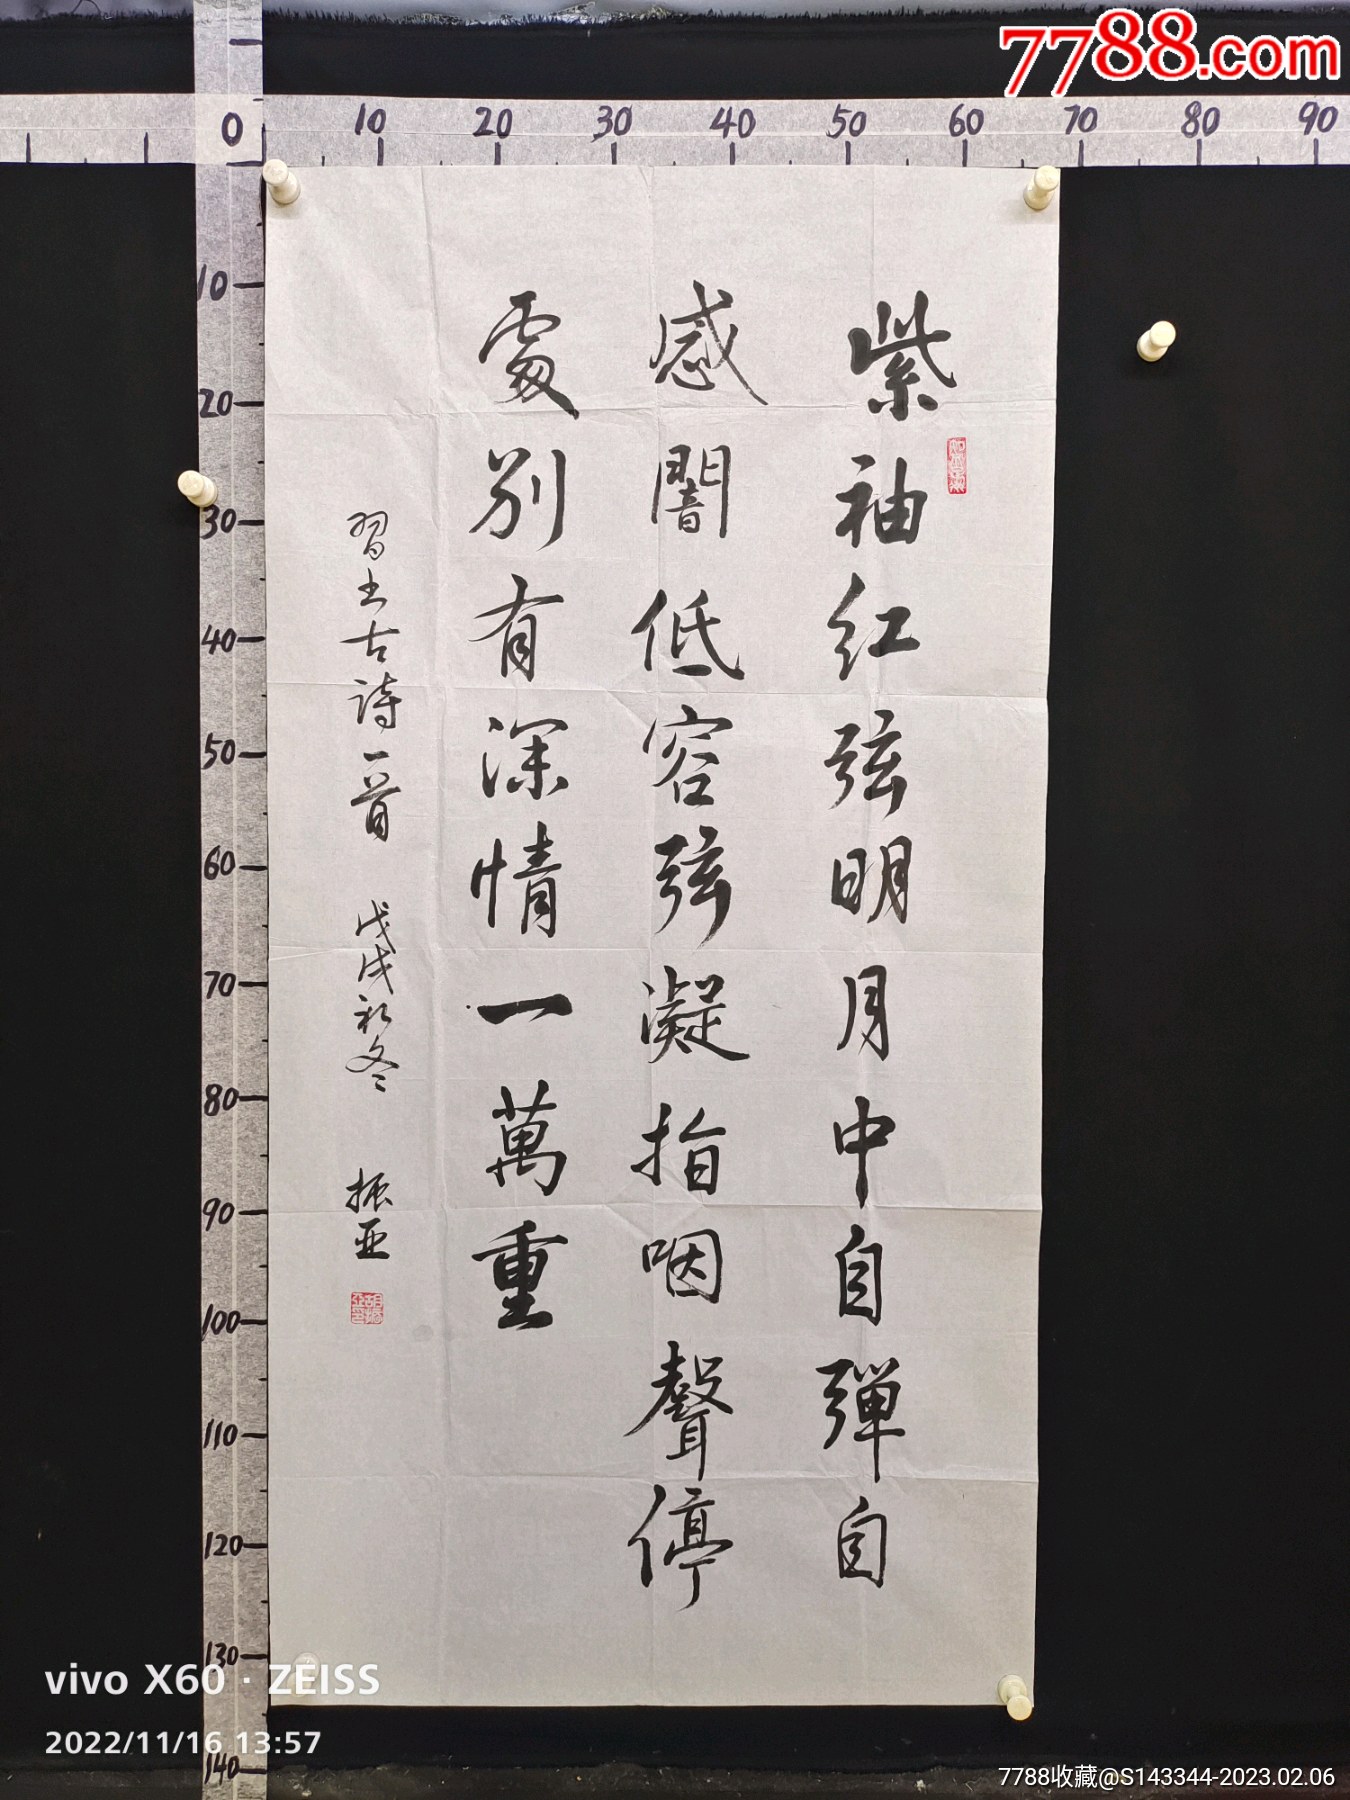 7788.com
0 10 20 30 40 50 60 70 80 90
10
20
30
40
50
60
70
80
90
100
110
120
130
140
紫袖红弦明月中自弹自
感闇低容弦凝指咽聲停
處别有深情一萬重
習上古詩一首 戊戌初冬 振亚
vivo X60 · ZEISS
2022/11/16 13:57
7788收藏@S143344-2023.02.06